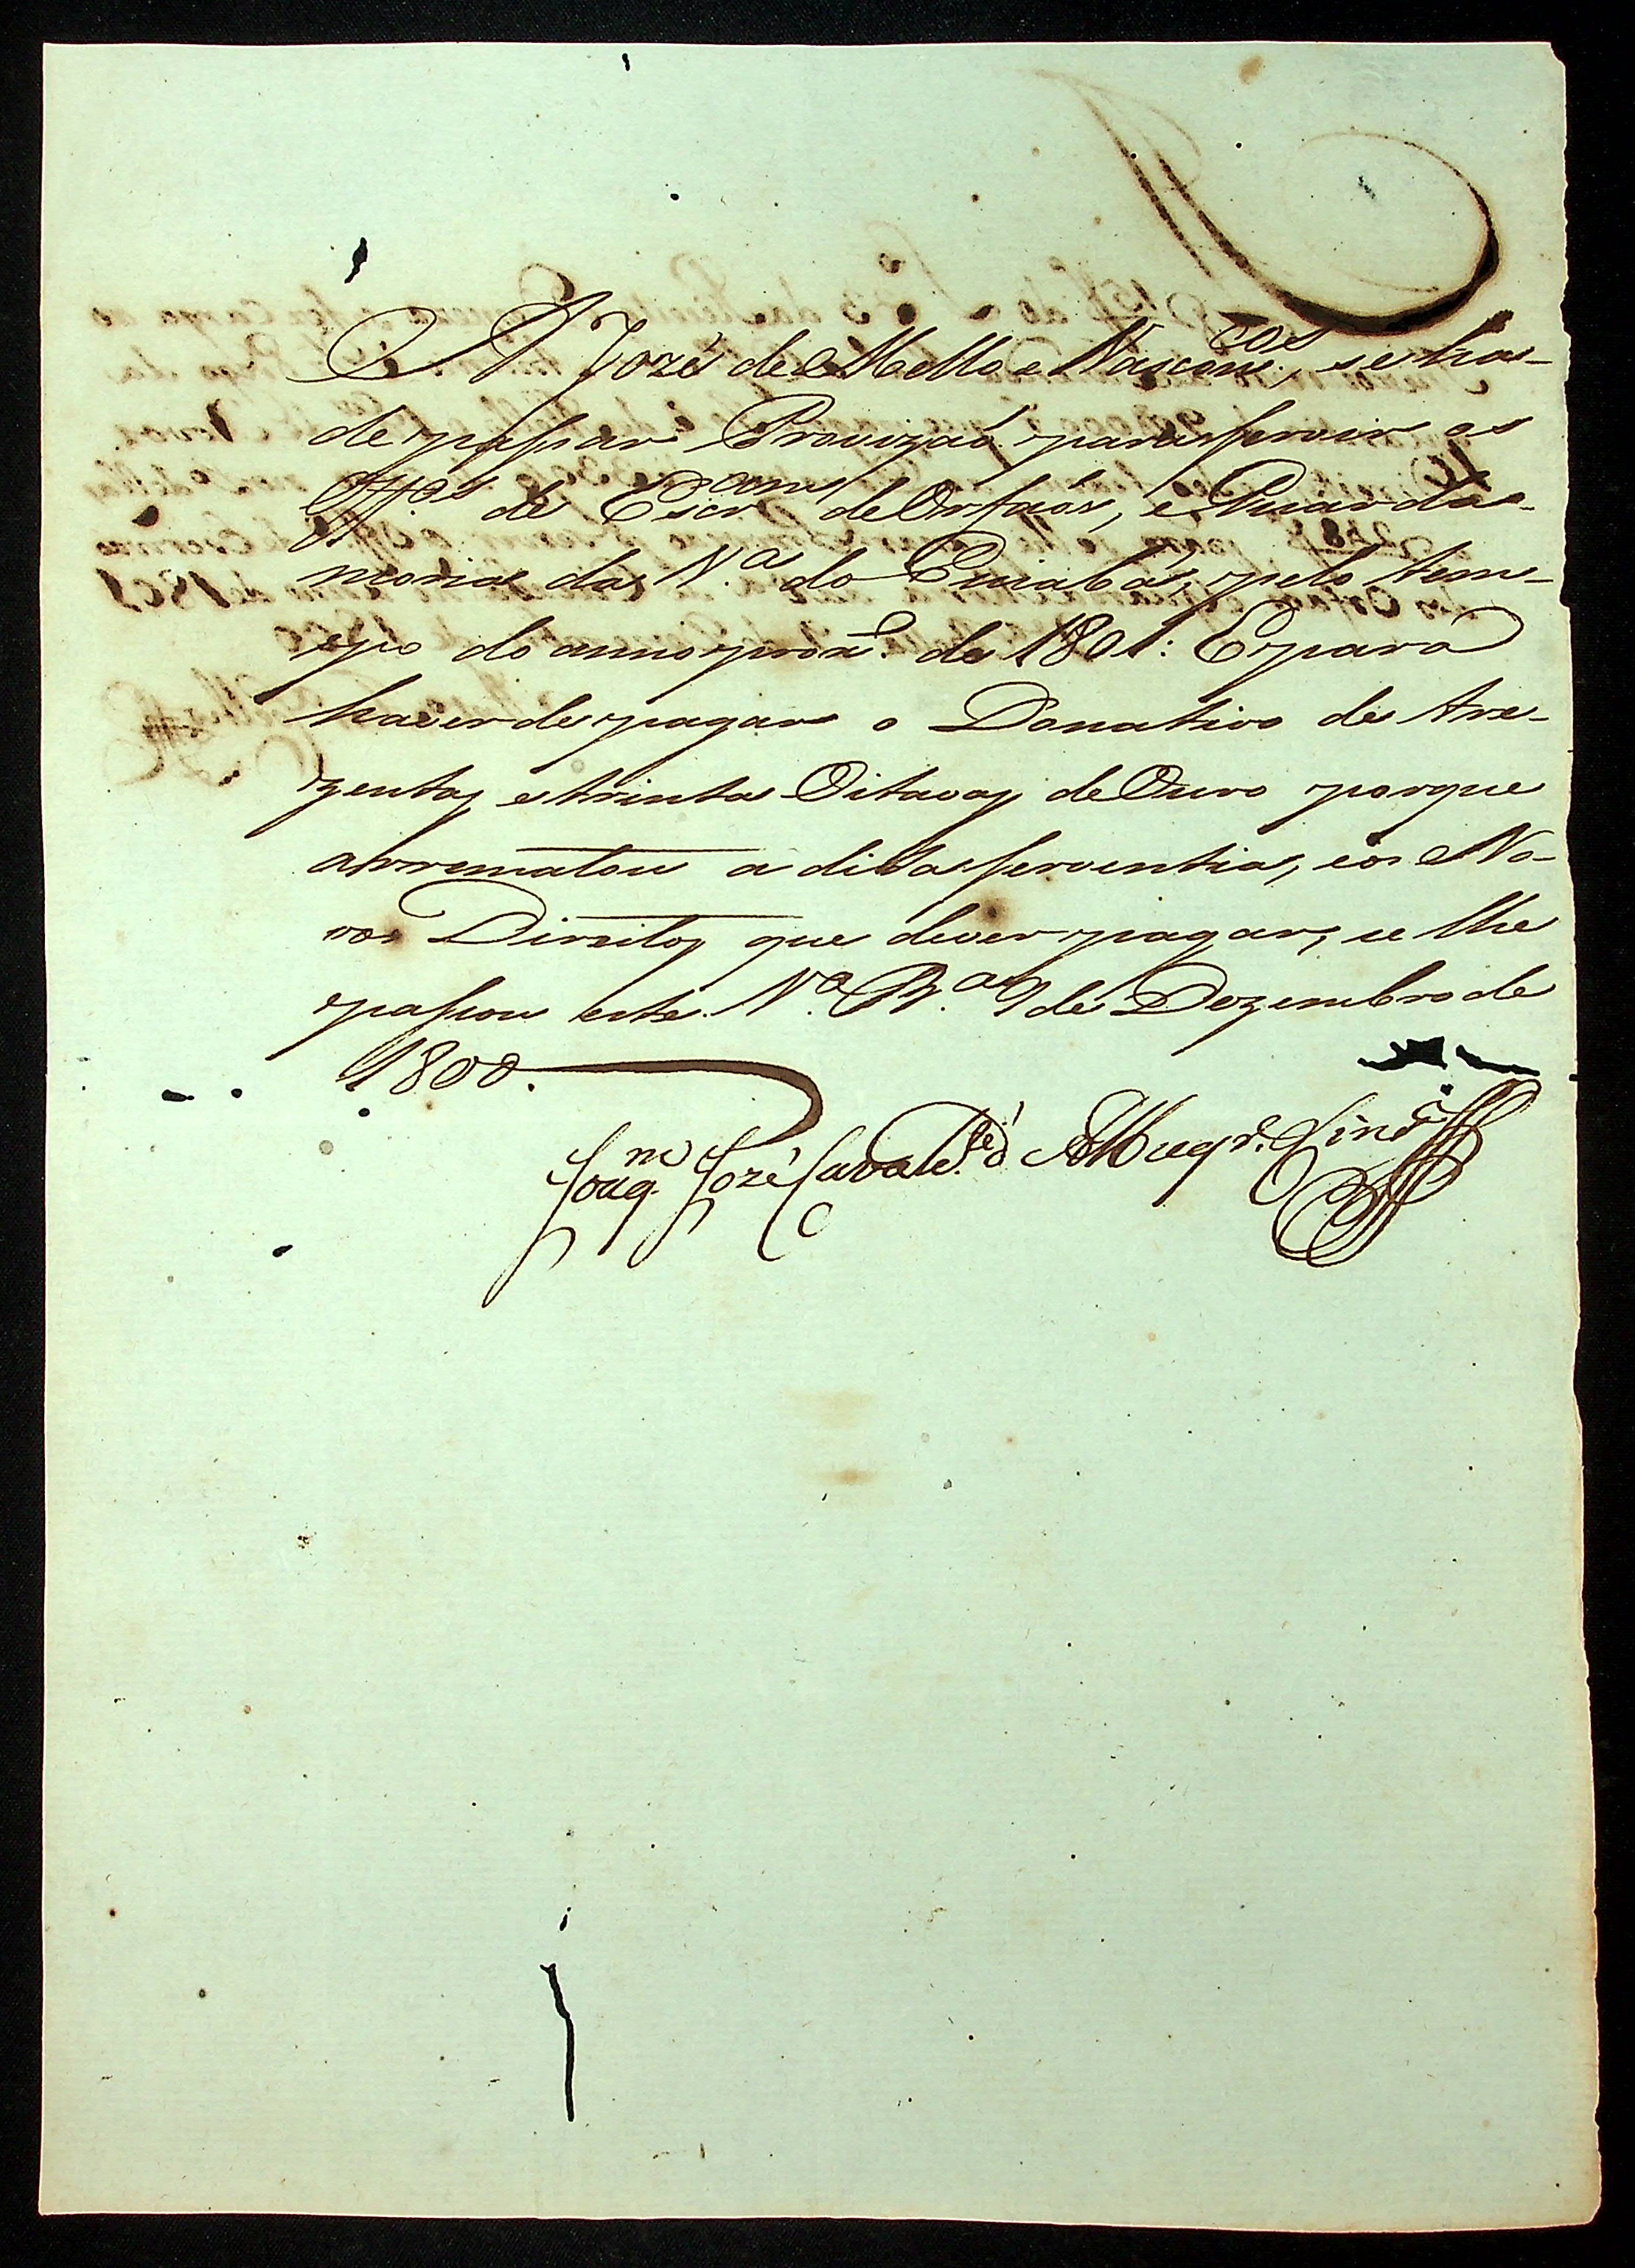 A Jozé de Mello e Vasconc.cos, se ha-
de passar Provizaõ para servir os
Off.os de Escr.am de Orfaõs, e Guarda-
moria da V.a do Cuiabá, pelo tem-
po do anno prox.o de 1801: E para
haver de pagar o Donativo de tre-
zentas e trinta Oitavas de Ouro porque
arrematou a dita serventia, e os No-
vos Direitos que dever pagar, se lhe
passou este. V.a B.a 9 de Dezembro de
1800.
Joaq.m Jozé Cavalc.te d' Albuqr.e Lins